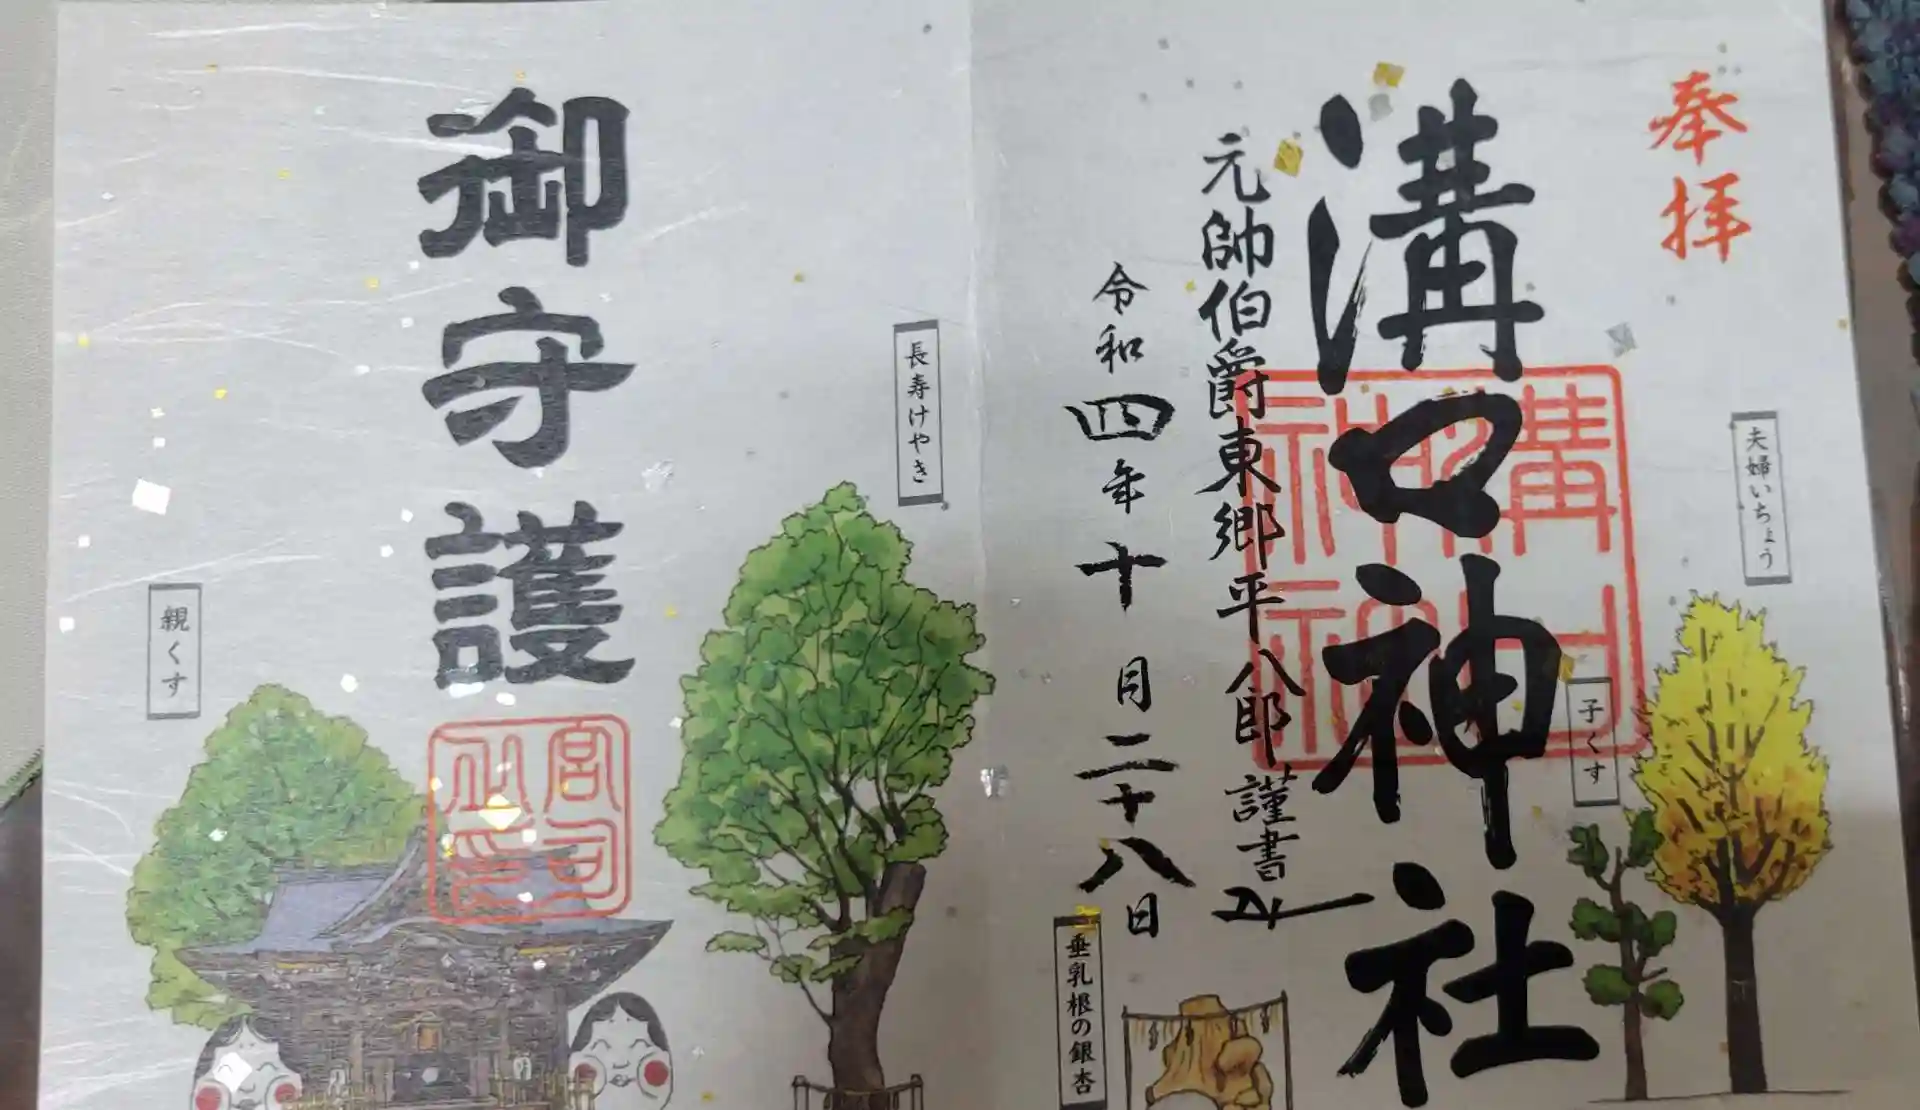 奉拝
夫婦いちょう
溝口神社
溝口神社
子くす
元帥伯爵東郷平八郎謹書
令和四年十月二十八日
垂乳根の銀杏
長寿けやき
御守護
宮司之印
親くす